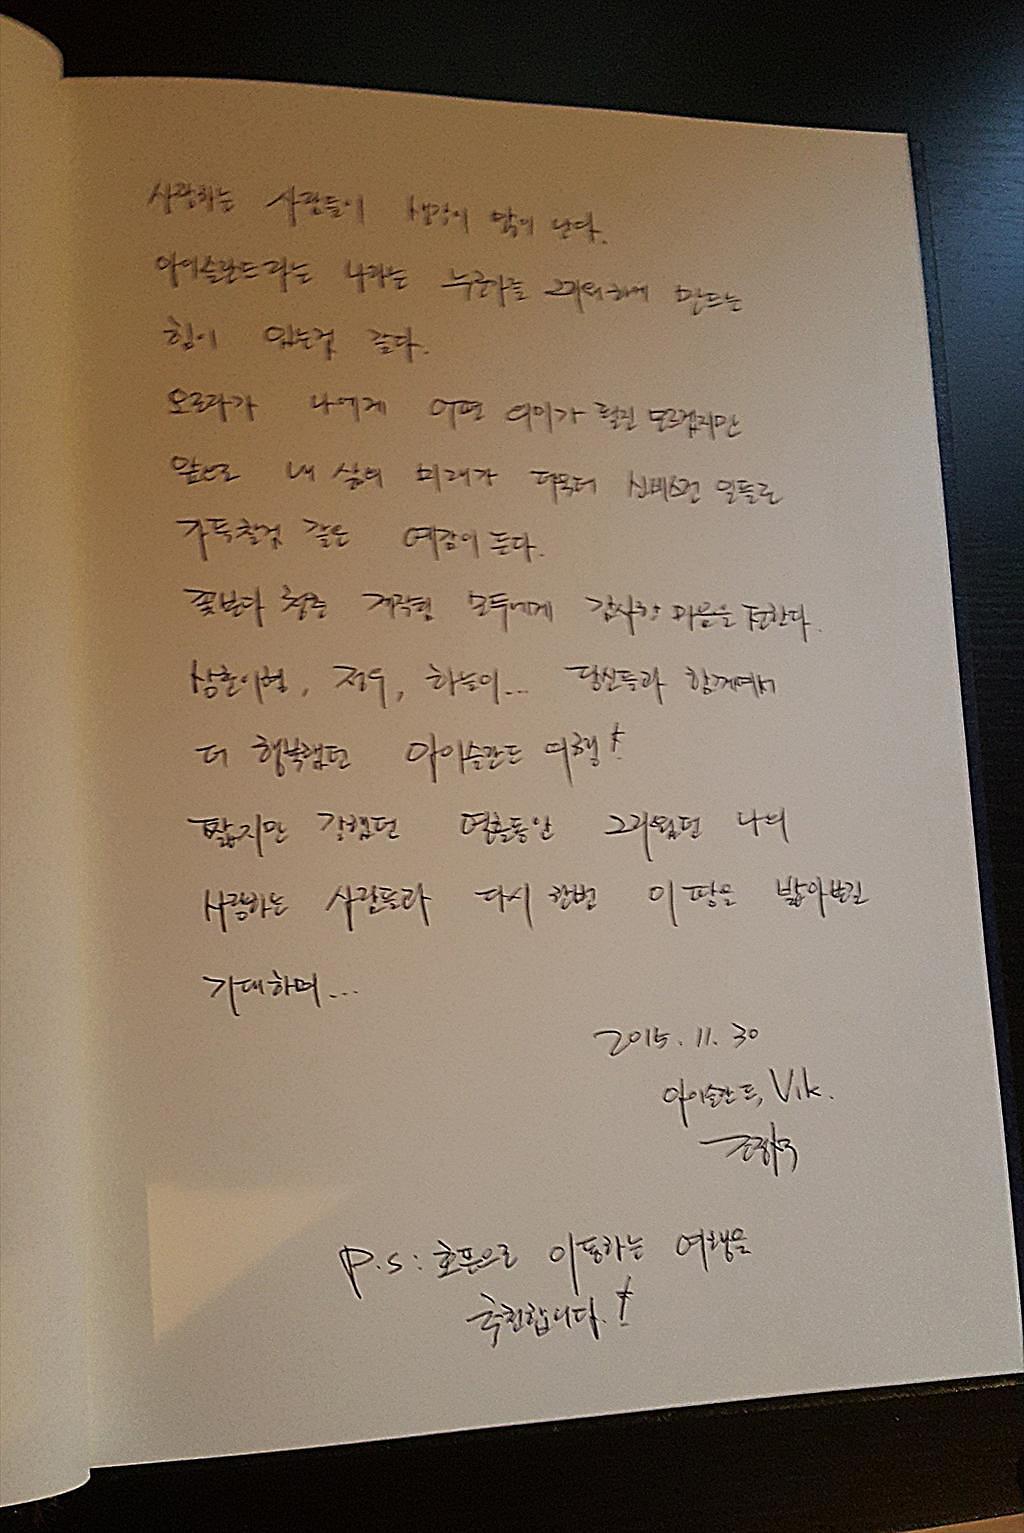 사랑하는 사람들이 생각이 많이 난다.
아이슬란드라는 나라는 누군가를 그리워하게 만드는
힘이 있는것 같다.
오로라가 나에게 어떤 의미가 될진 모르겠지만
앞으로 내 삶의 미래가 더욱더 신비스런 일들로
가득찰것 같은 예감이 든다.
꽃보다 청춘 제작팀 모두에게 감사한 마음을 전한다.
상훈이형, 정우, 하늘이... 당신들과 함께여서
더 행복했던 아이슬란드 여행!
짧지만 강했던 여행동안 그리웠던 나의
사랑하는 사람들과 다시 한번 이 땅을 밟아보길
기대하며...
2015. 11. 30
아이슬란드, Vik.
조정석
P.S: 호픈으로 이동하는 여행을
추천합니다.!